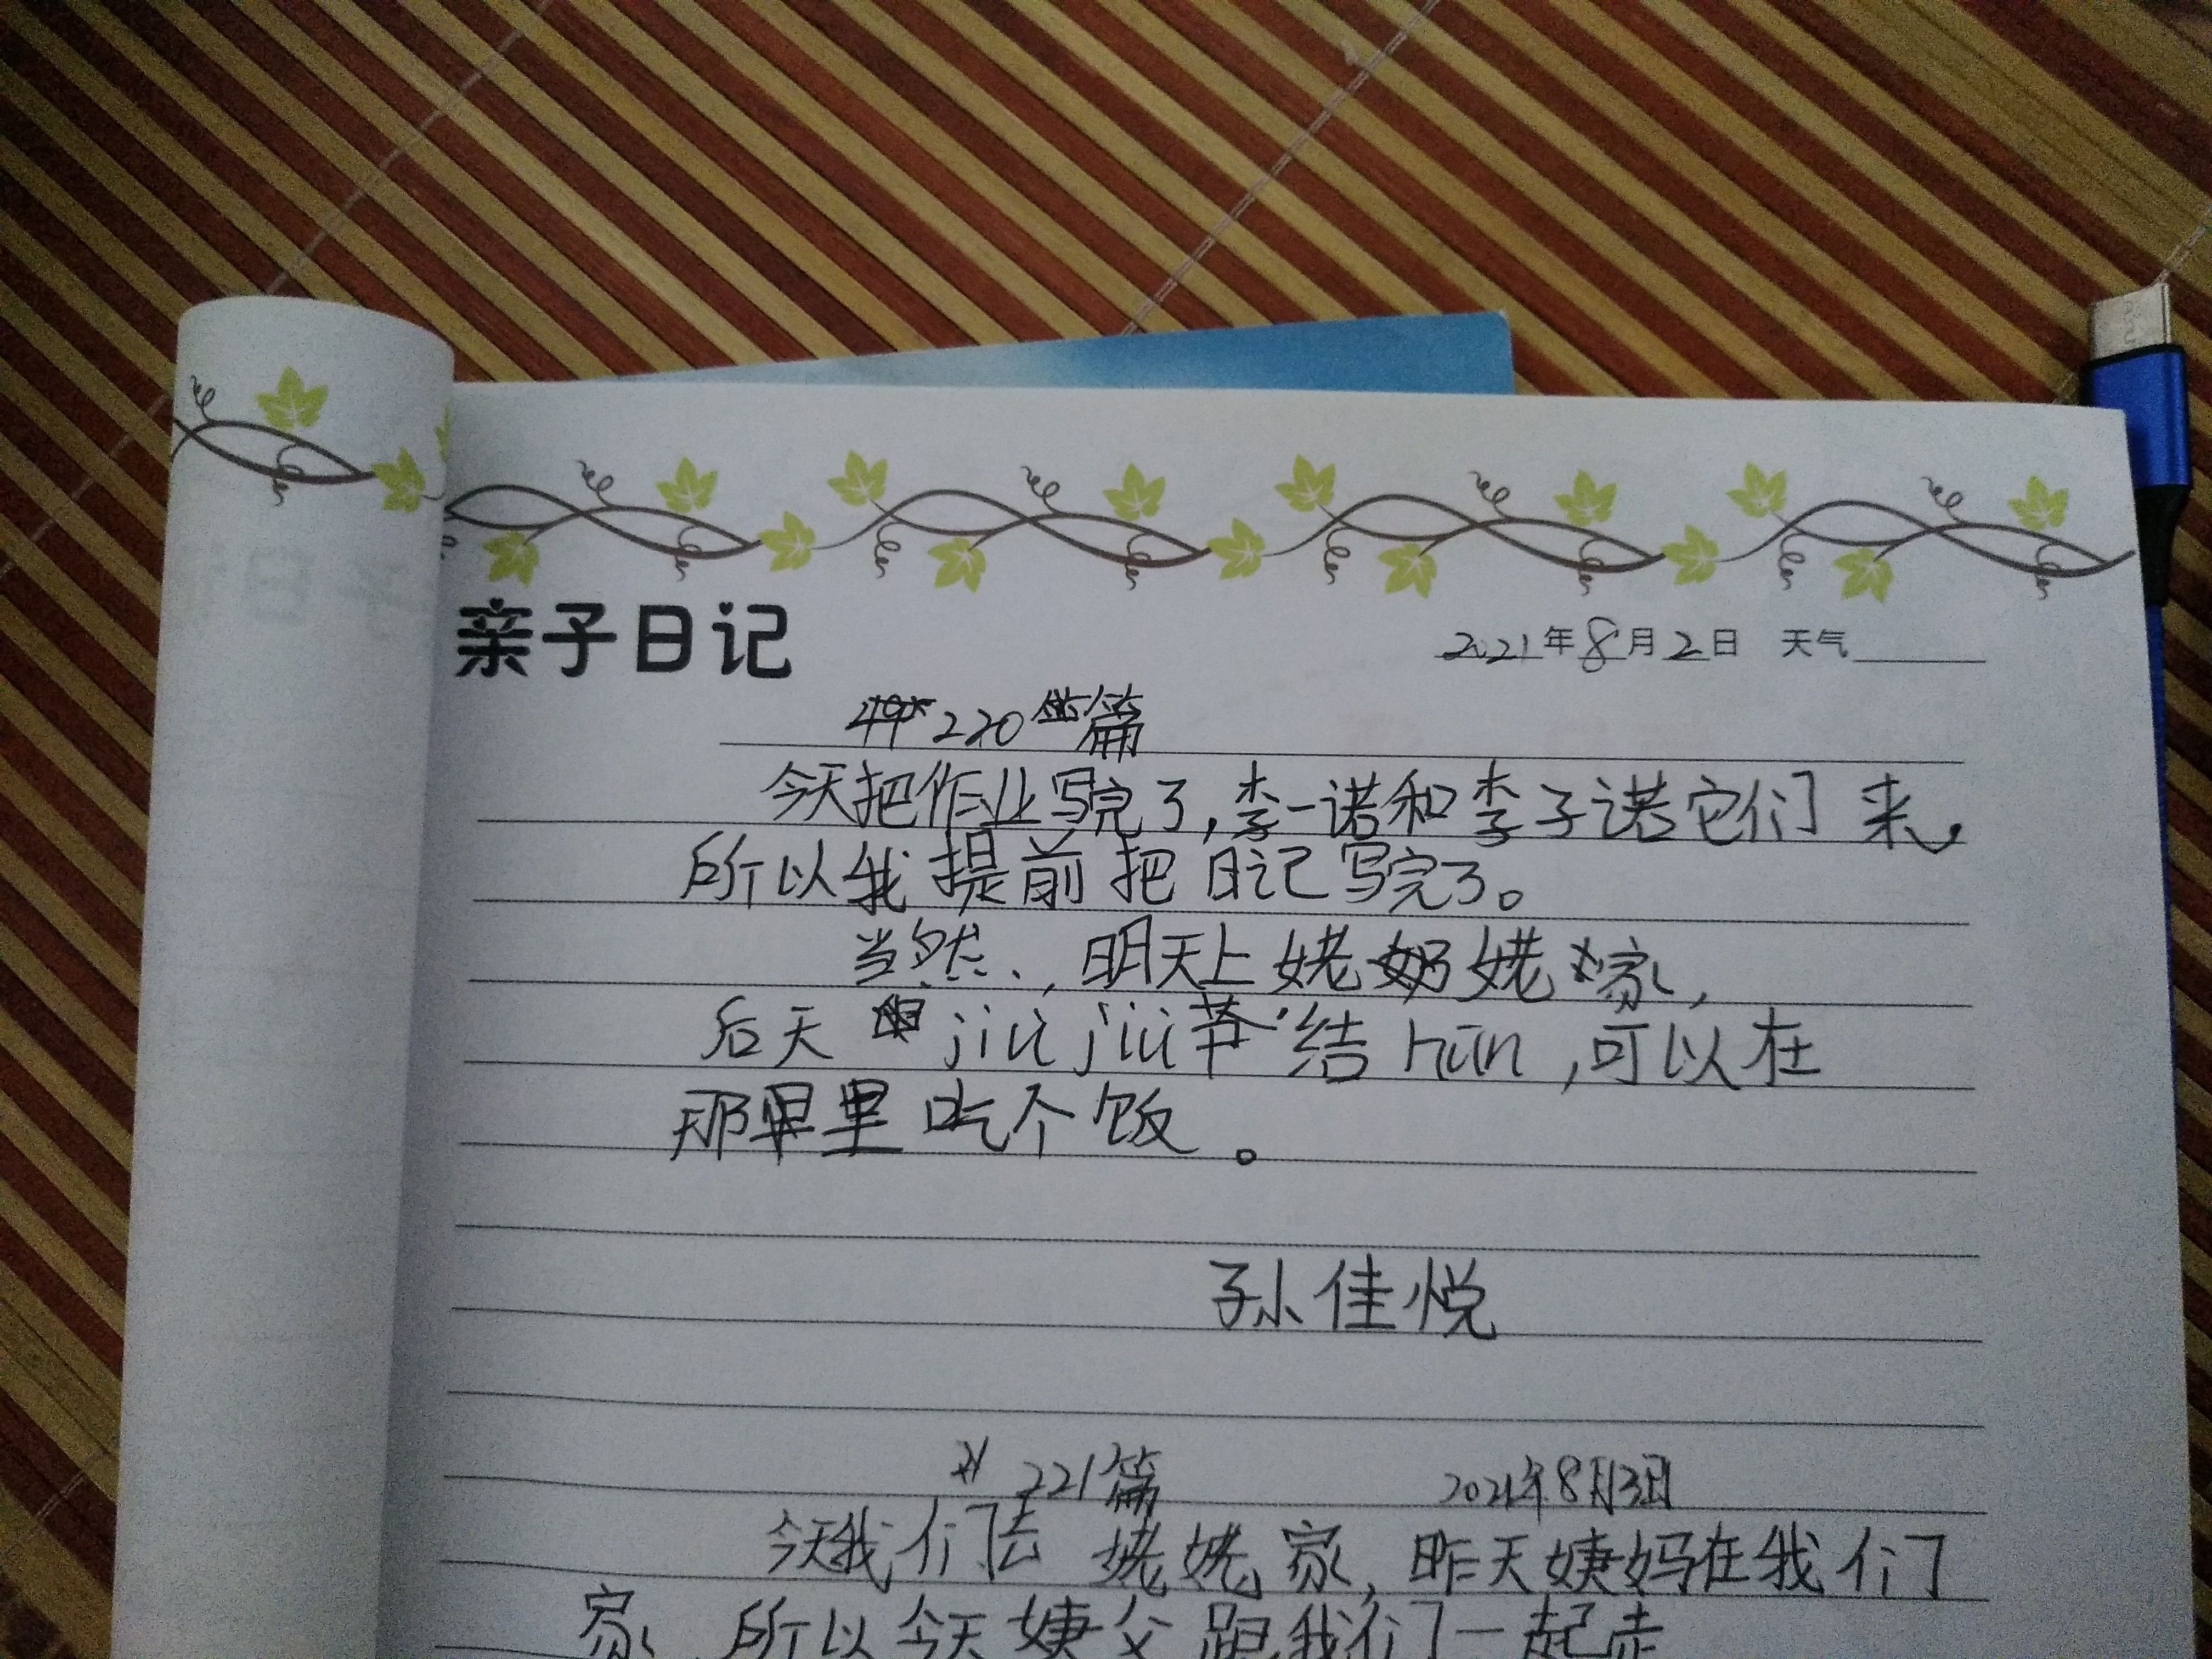 亲子日记
2021年8月2日 天气
220篇
今天把作业写完了,李一诺和李子诺它们来,
所以我提前把日记写完了。
当然,明天上姥姥家,
后天jiù jiu 结hūn,可以在
那里吃个饭。
孙佳悦
221篇 2021年8月3日
今天我们去姥姥家,昨天姨妈在我们
家 所以今天姨父跟我们一起走